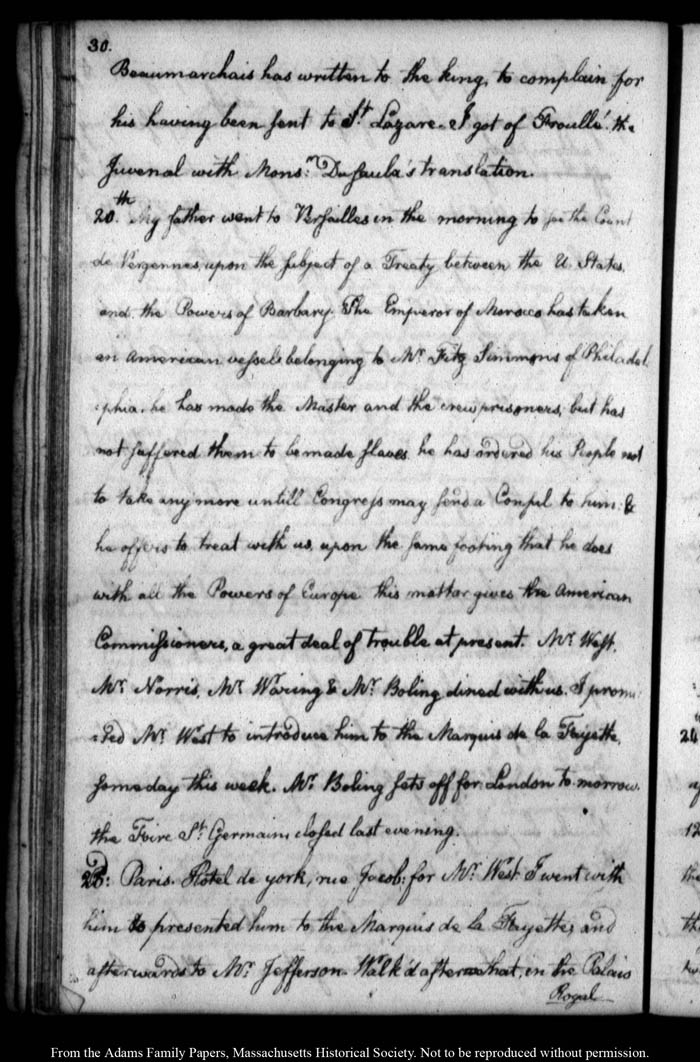 30.
Beaumarchais has written to the king, to complain for
his having been sent to St. Lazare. I got of Froullé. the
Juvenal with Monsr. Dusaulx's translation.
20th. My father went to Versailles in the morning to see the Count
de Vergennes, upon the subject of a Treaty between the U. States,
and the Powers of Barbary. The Emperor of Morocco has taken
an American vessels belonging to Mr. Fitz Simmons of Philadel
:phia. he has made the Master and the crew prisoners, but has
not suffered them to be made slaves. he has ordered his People not
to take any more untill Congress may send a Consul to him: &
he offers to treat with us, upon the same footing that he does
with all the Powers of Europe this matter gives the American
Commissioners, a great deal of trouble at present. Mr. West,
Mr. Norris, Mr. Waring & Mr. Boling dined with us. I promi:
:sed Mr. West to introduce him to the Marquis de la Fayette,
some day this week. Mr. Boling sets off for London to-morrow.
the Foire St. Germain, closed last evening.
Paris. Hôtel de york, rue Jacob: for Mr. West I went with
him & presented him to the Marquis de la Fayette, and
afterwards to Mr. Jefferson. Walk'd after that, in the Palais
Royal
24
From the Adams Family Papers, Massachusetts Historical Society. Not to be reproduced without permission.